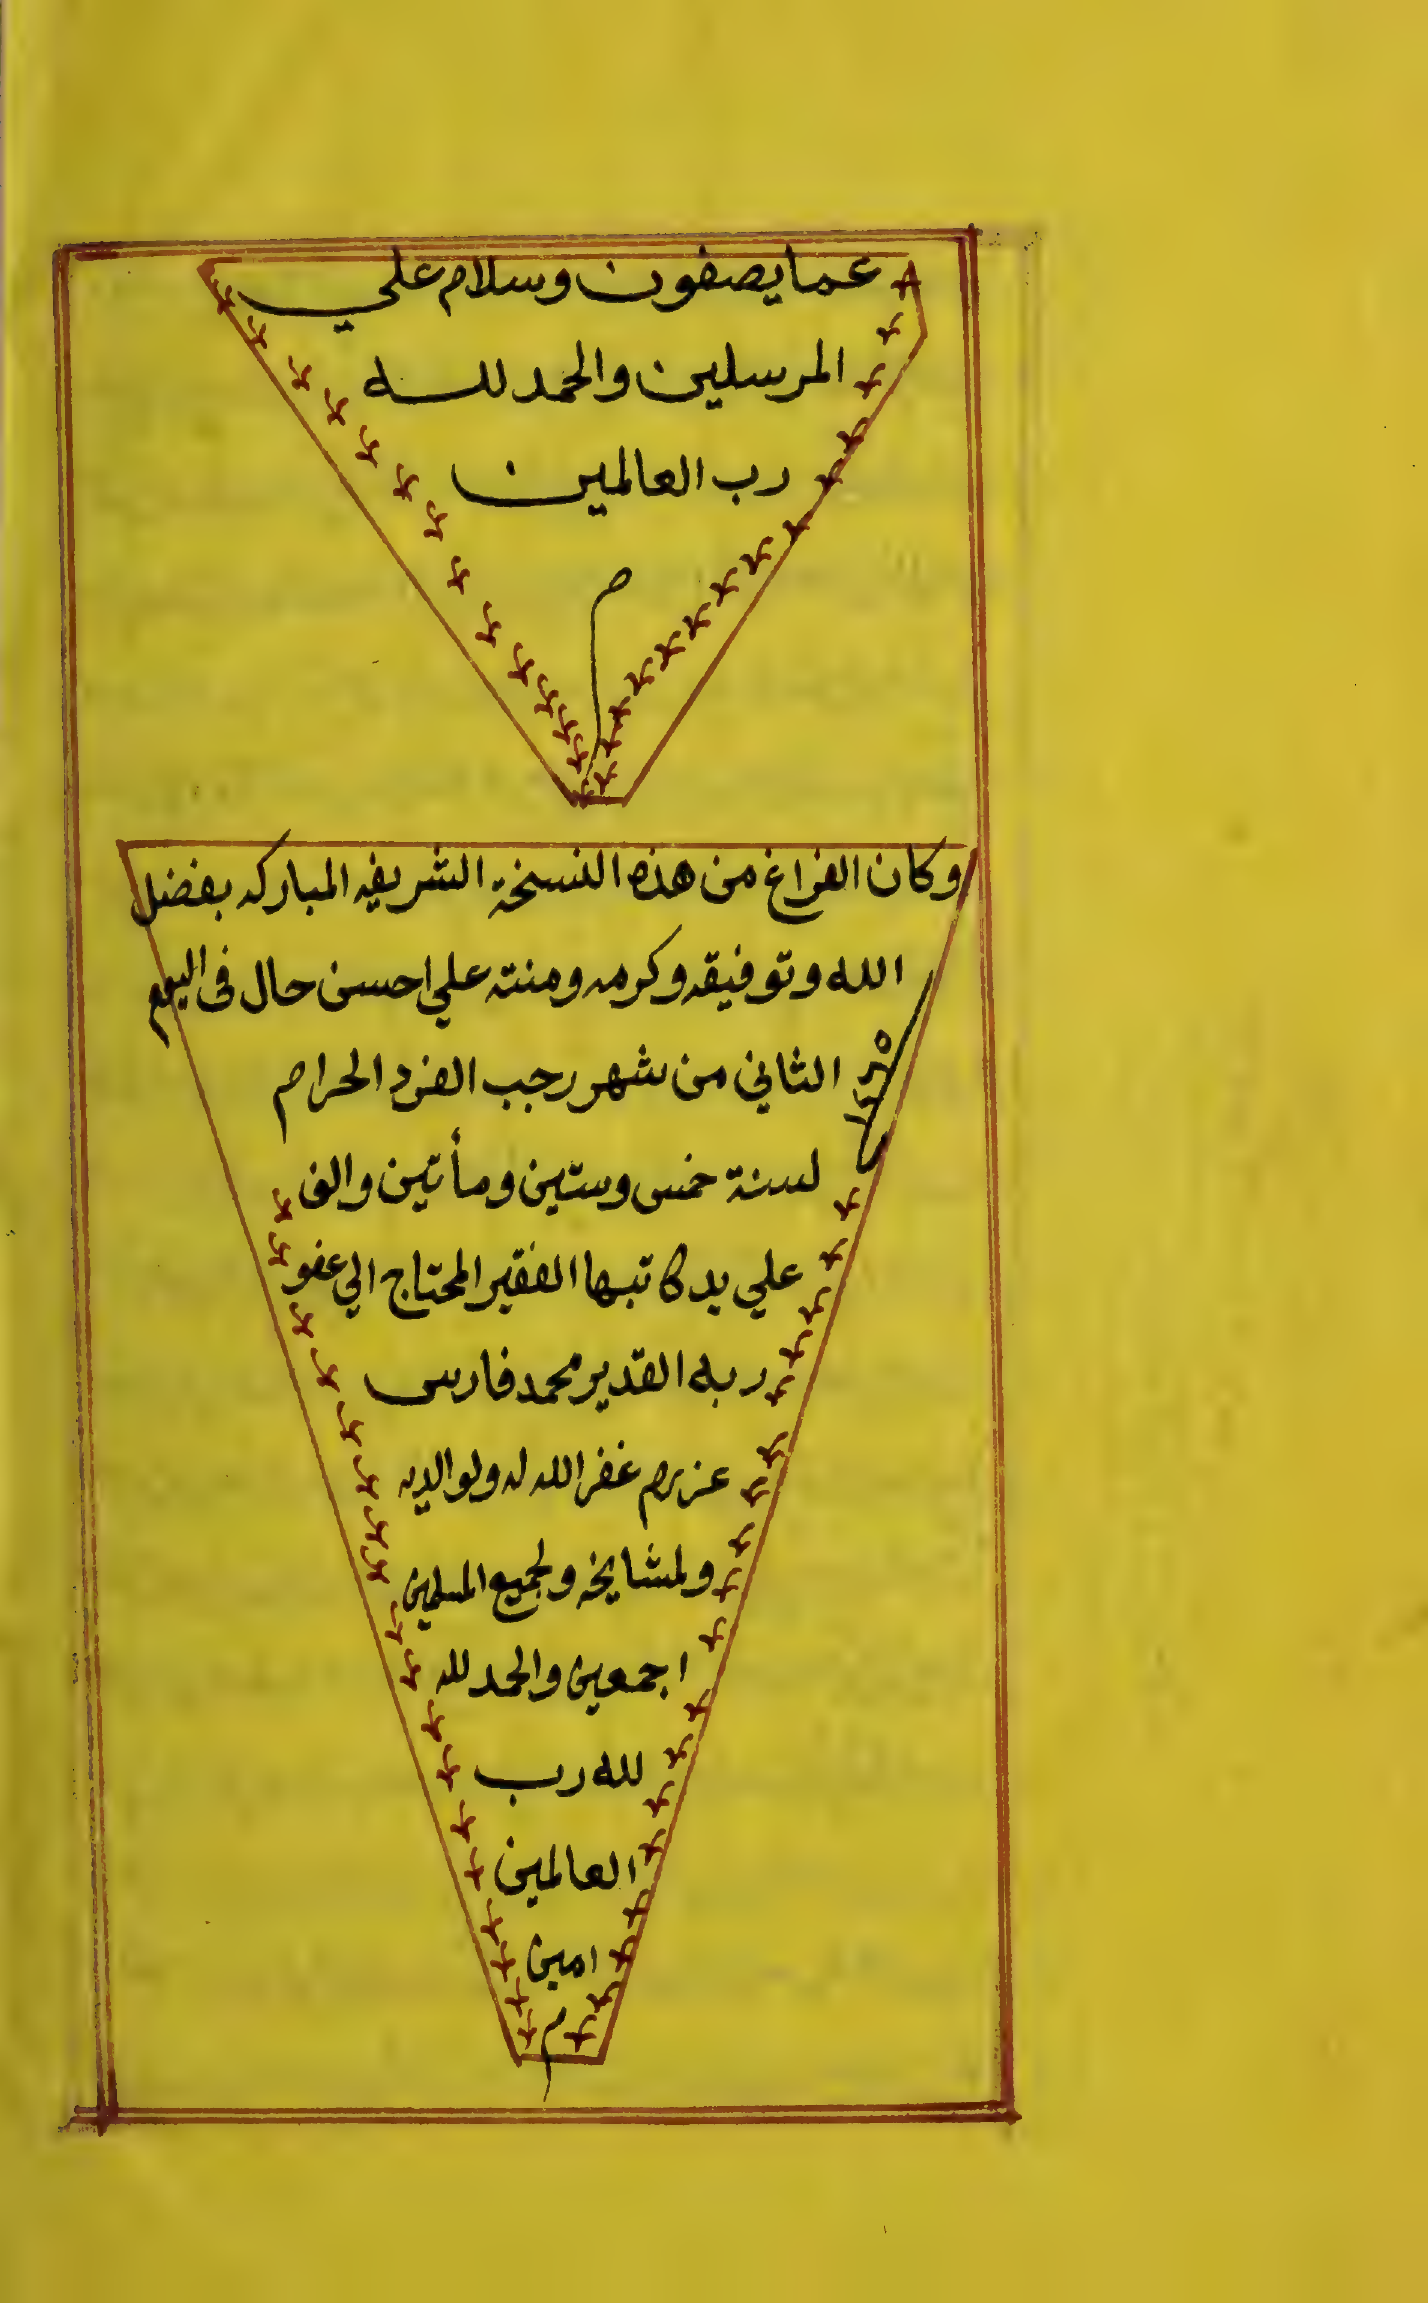 عما يصفون وسلام علي
المرسلين والحمد لله
رب العالمين
م
وكان الفراغ من هذه النسخة الشريفه المباركه بفضل
الله وتوفيقه وكرمه ومنته علي احسن حال في اليوم
الثاني من شهر رجب الفرد الحرام
لسنة خمس وستين ومأتين والف
علي يد كاتبها الفقير المحتاج الي عفو
ربه القدير محمد فارس
غفر الله له ولوالديه
ولمشايخه ولجميع المسلمين
اجمعين والحمد لله
لله رب
العالمين
امين
م